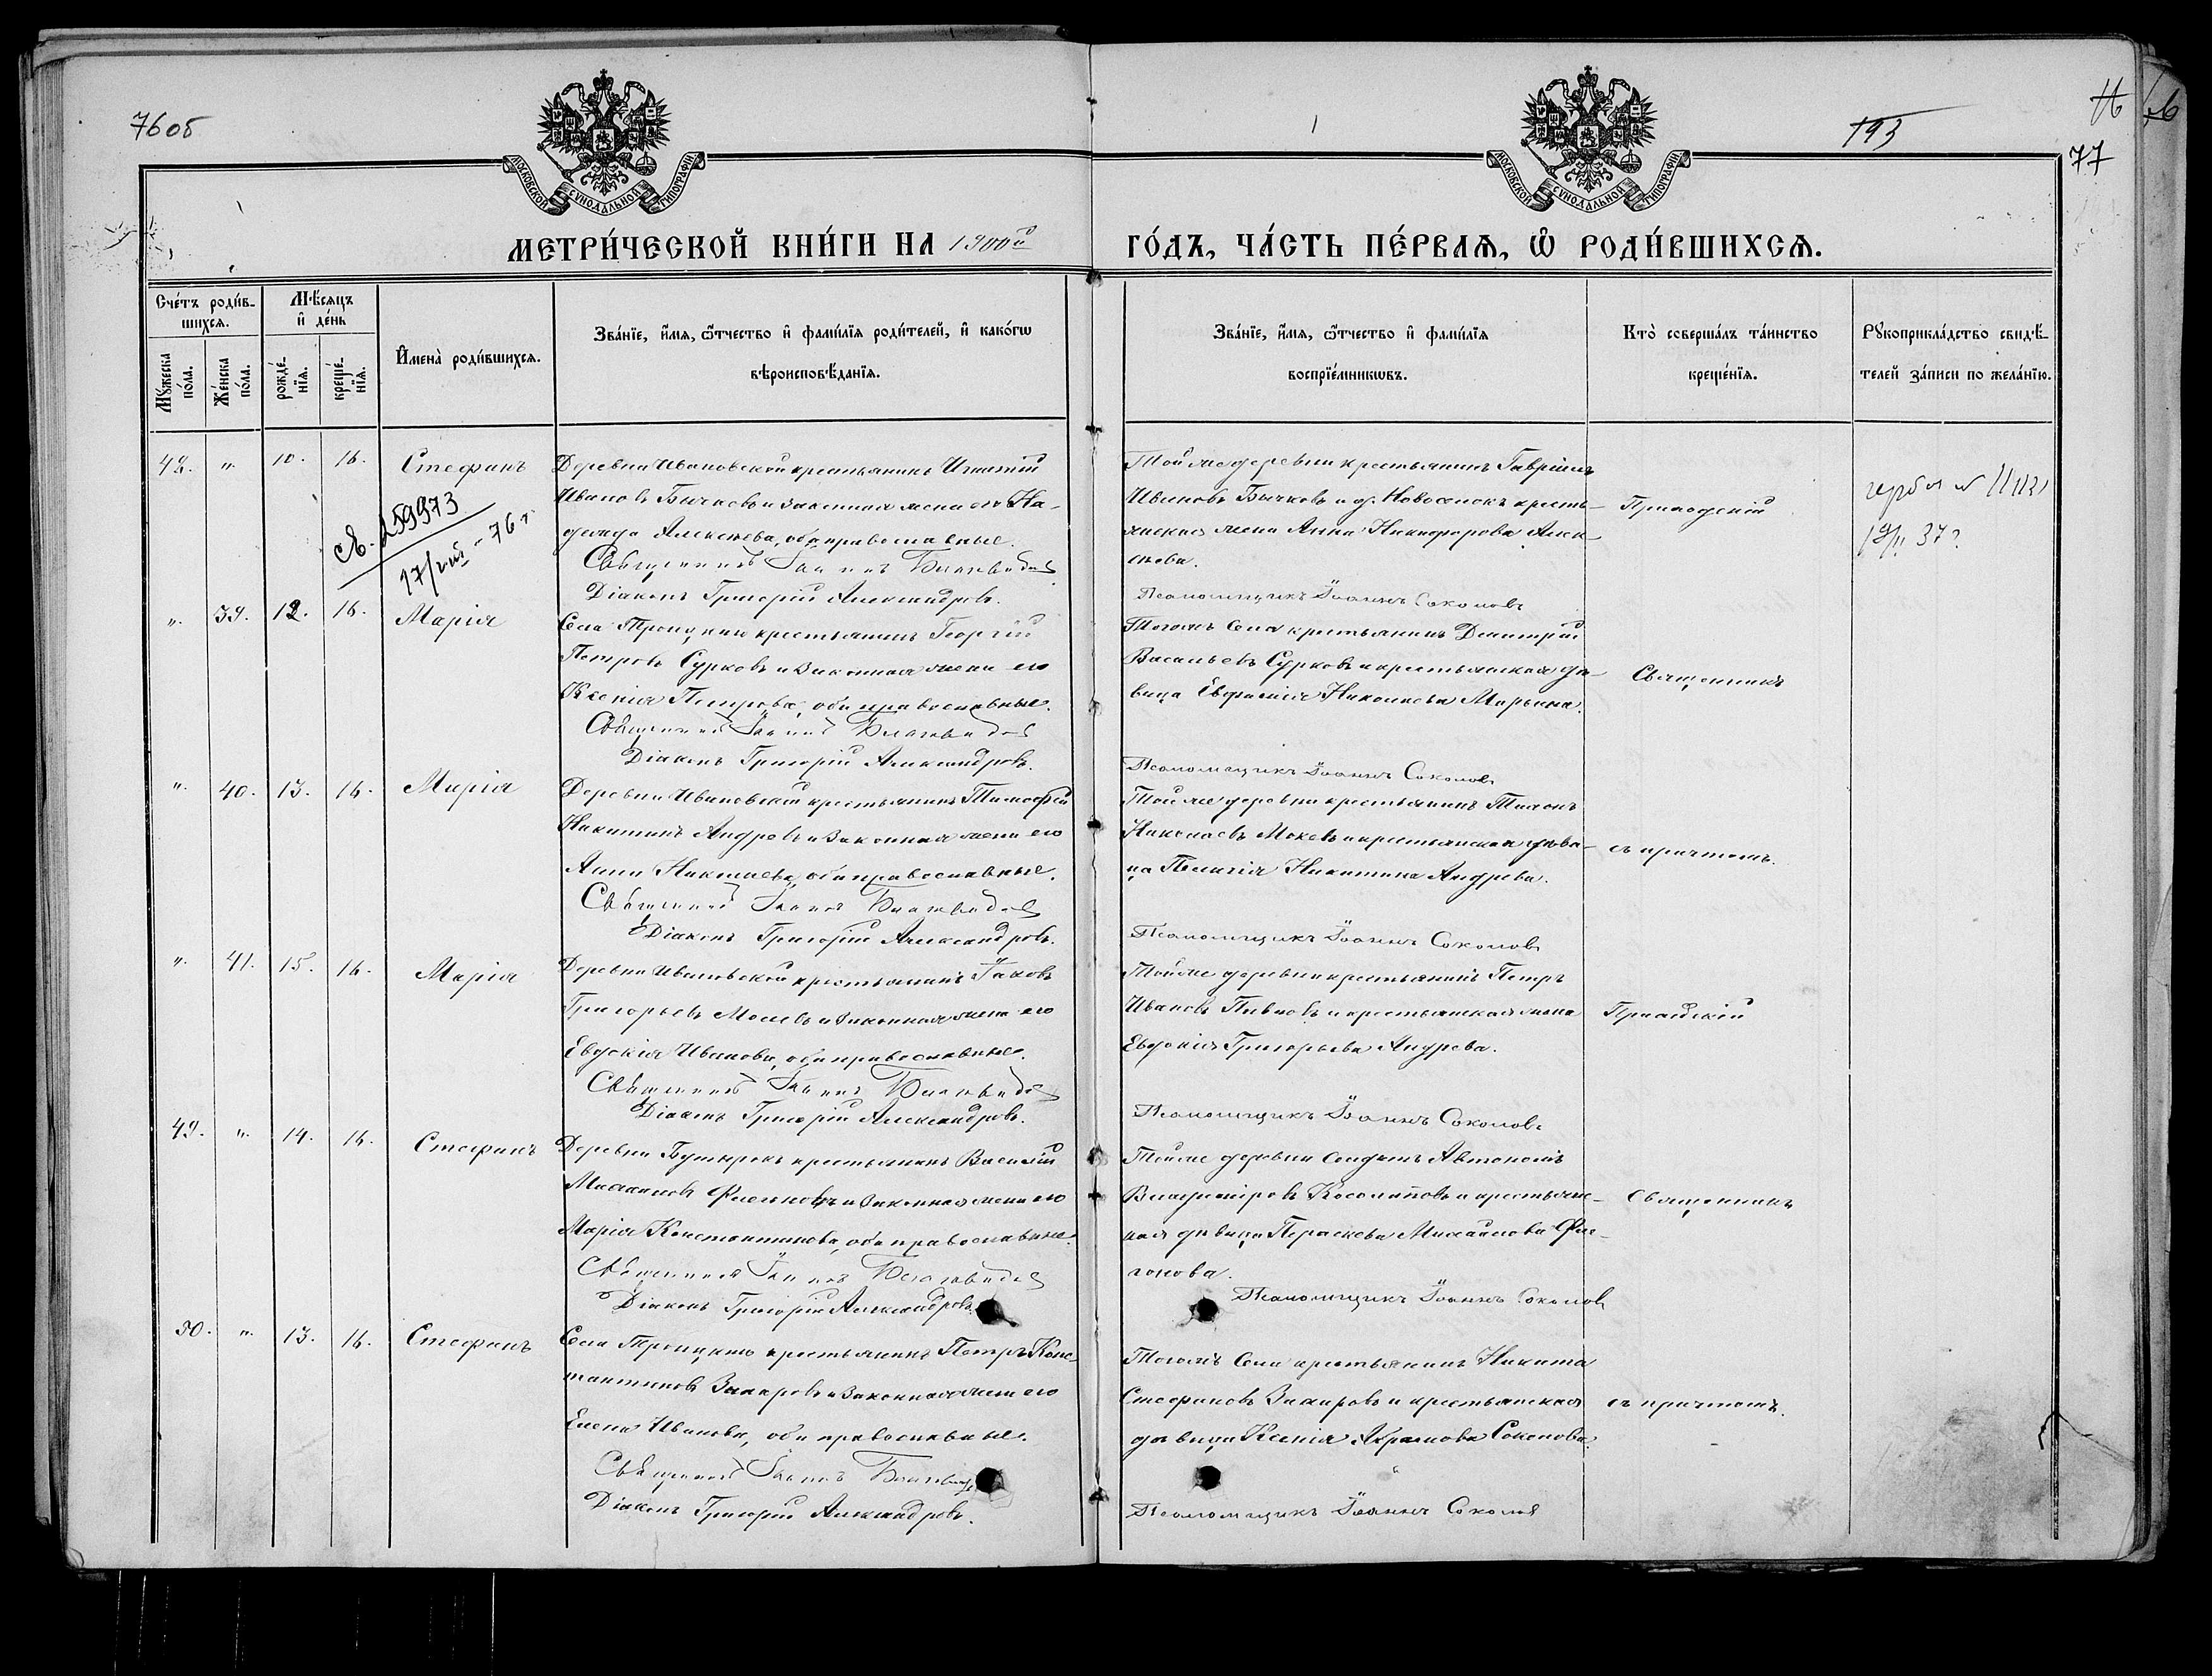 76об
193
77
МОСКОВСКОЙ СѴНОДАЛЬНОЙ ТИПОГРАФІИ
МОСКОВСКОЙ СѴНОДАЛЬНОЙ ТИПОГРАФІИ
МЕТРИ́ЧЕСКОЙ КНИ́ГИ НА 1900й
ГО́ДЪ, ЧА́СТЬ ПЕ́РВАЯ, Ѡ҆ РОДИ́ВШИХСЯ.
Сче́тъ роди́в-
шихся.
Мꙋжеска по́ла.
Же́нска по́ла.
Мѣ́сяцъ и҆ де́нь
рожде́-нїя.
креще́-нїя.
И҆мена̀ роди́вшихся.
Зва́нїе, и҆́мя, ѻ҆́тчество и҆ фами́лїя роди́телей, и҆ како́гѡ
вѣроисповѣ́данїя.
Зва́нїе, и҆́мя, ѻ҆́тчество и҆ фами́лїя
воспрїе́мникѡвъ.
Кто̀ соверша́лъ та́инство
креще́нїя.
Рꙋкоприкла́дство свидѣ́-
телей за́писи по жела́нїю.
48. „ 10. 16. Стефанъ
Деревни Ивановской крестьянинъ Игнатій
Ивановъ Бычковъ и законная жена его На-
дежда Алексѣева, оба православные.
Священникъ Іоаннъ
Діаконъ Григорій Александровъ.
Той же деревни крестьянинъ Гавріилъ
Ивановъ Бычковъ и д. Новоселокъ кресть-
янская жена Анна Никифорова Алек-
сѣева.
Псаломщикъ Іоаннъ Соколовъ
Приходскій
259973
76 г.
37 г.
„ 39. 12. 16. Марія
Села Троицкаго крестьянинъ Георгій
Петровъ Сурковъ и законная жена его
Ксенія Петрова, оба православные.
Священникъ Іоаннъ
Діаконъ Григорій Александровъ.
Тогожъ села крестьянинъ Димитрій
Васильевъ Сурковъ и крестьянская дѣ-
вица Евфимія Николаева Марьина.
Псаломщикъ Іоаннъ Соколовъ
Священникъ
„ 40. 13. 16. Марія
Деревни Ивановской крестьянинъ Тимофей
Никитинъ Андревъ и законная жена его
Анна Николаева, оба православные.
Священникъ Іоаннъ
Діаконъ Григорій Александровъ.
Той же деревни крестьянинъ Тихонъ
Николаевъ Мохевъ и крестьянская дѣви-
ца Пелагія Никитина Андрева.
Псаломщикъ Іоаннъ Соколовъ
съ причтомъ.
„ 41. 15. 16. Марія
Деревни Ивановской крестьянинъ Іаковъ
Григорьевъ и законная жена его
Евдокія Иванова, оба православные.
Священникъ Іоаннъ
Діаконъ Григорій Александровъ.
Той же деревни крестьянинъ Петръ
Ивановъ и крестьянская жена
Евдокія Григорьева Андрева.
Псаломщикъ Іоаннъ Соколовъ
Приходскій
49. „ 14. 16. Стефанъ
Деревни Бутырокъ крестьянинъ Василій
Михаиловъ и законная жена его
Марія Константинова, оба православные.
Священникъ Іоаннъ
Діаконъ Григорій Александровъ.
Той же деревни солдатъ Автономъ
Владиміровъ и крестьянс-
кая дѣвица Параскева Михаилова
Псаломщикъ Іоаннъ Соколовъ
Священникъ
50. „ 13. 16. Стефанъ
Села Троицкаго крестьянинъ Петръ Конс-
тантиновъ Захаровъ и законная жена его
Елена Иванова, оба православные.
Священникъ Іоаннъ
Діаконъ Григорій Александровъ.
Тогожъ села крестьянинъ Никита
Стефановъ Захаровъ и крестьянская
дѣвица Ксенія Абрамова
Псаломщикъ Іоаннъ Соколовъ
съ причтомъ.